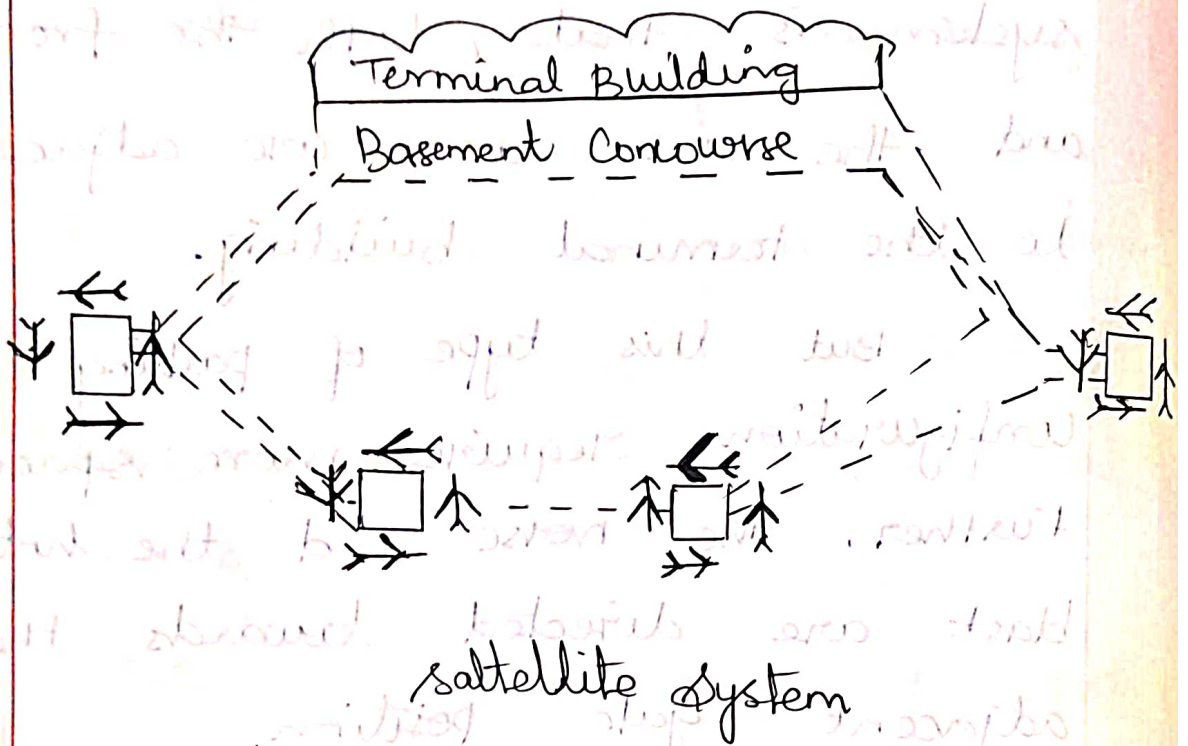 Terminal Building
Basement Concourse
saltellite System